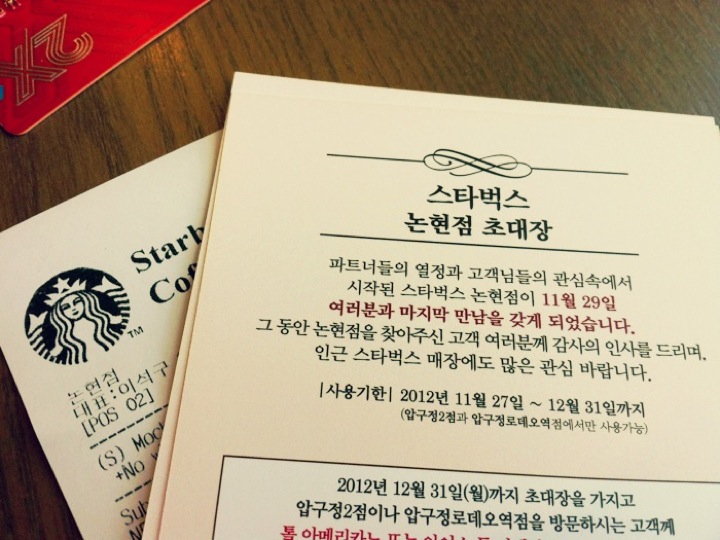 스타벅스
논현점 초대장
파트너들의 열정과 고객님들의 관심속에서
시작된 스타벅스 논현점이 11월 29일
여러분과 마지막 만남을 갖게 되었습니다.
그 동안 논현점을 찾아주신 고객 여러분께 감사의 인사를 드리며,
인근 스타벅스 매장에도 많은 관심 바랍니다.
|사용기한| 2012년 11월 27일 ~ 12월 31일까지
(압구정2점과 압구정로데오역점에서만 사용가능)
2012년 12월 31일(월)까지 초대장을 가지고
압구정2점이나 압구정로데오역점을 방문하시는 고객께
톨 아메리카노 또는
Starb
Cof
TM
논현점
대표:이석구
[POS 02]
(S) Moc
+No
Sub